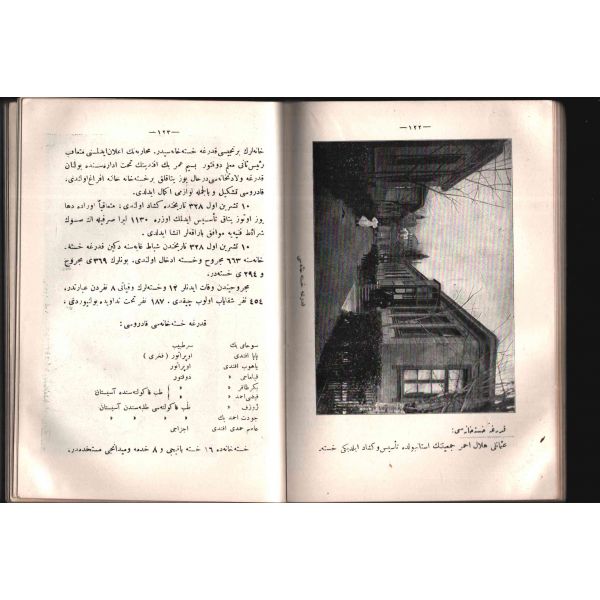 — ١٢٢ —
قدرغه خسته‌خانه‌سی
قدرغه خسته‌خانه‌سی :
عثمانلی هلال احمر جمعیتنك استانبولده تأسیس و كشاد ایلدیكی خسته‌
— ١٢٣ —
خانه‌لرك برنجیسی قدرغه خسته‌خانه‌سیدر. محاربه‌نك اعلان ایدلمسنی متعاقب
رئیس ثانی معلم دوقتور بسیم عمر بك افندینك تحت اداره‌سنده بولنان
قدرغه ولادتخانه‌سی درحال یوز یتاقلق برخسته‌خانه حالنه افراغ اولندی.
قادروسی تشكیل و بالجمله لوازمی اكمال ایدلدی.
١٠ تشرین اول ٣٢٨ تاریخنده كشاد اولندی، متعاقباً اوراده دها
یوز اوتوز یتاق تأسیس ایدلمك اوزره ١١٣٠ لیرا صرفیله اك صوك
شرائط فنیه‌یه موافق باراقه‌لر انشا ایدلدی.
١٠ تشرین اول ٣٢٨ تاریخندن شباط غایه‌سنه دكین قدرغه خسته‌
خانه‌سنه ٦٦٣ مجروح و خسته ادخال اولندی. بونلرك ٣٦٩ ی مجروح
و ٢٩٤ ی خسته‌در.
مجروحیندن وفات ایدنلر ١٢ و خسته‌لرك وفیاتی ٨ نفردن عبارتدر.
٤٥٤ نفر شفایاب اولوب چیقدی. ١٨٧ نفر تحت تداویده بولنیوردی.
قدرغه خسته‌خانه‌سی قادروسی :
سرطبیب
پاپا افندی اوپراتور ( فخری )
یاقوب افندی اوپراتور
دوقتور
بكر ظافر »
فیضی احمد » طب فاكولته‌سنده آسیستان
ژوزف » طب فاكولته‌سی طلبه‌سندن آسیستان
جودت احمد بك » » » »
عاصم حمدی افندی اجزاجی
خسته‌خانه‌ده ١٦ خسته باقیجی و ٨ خدمه ومیدانجی مستخدمدر.